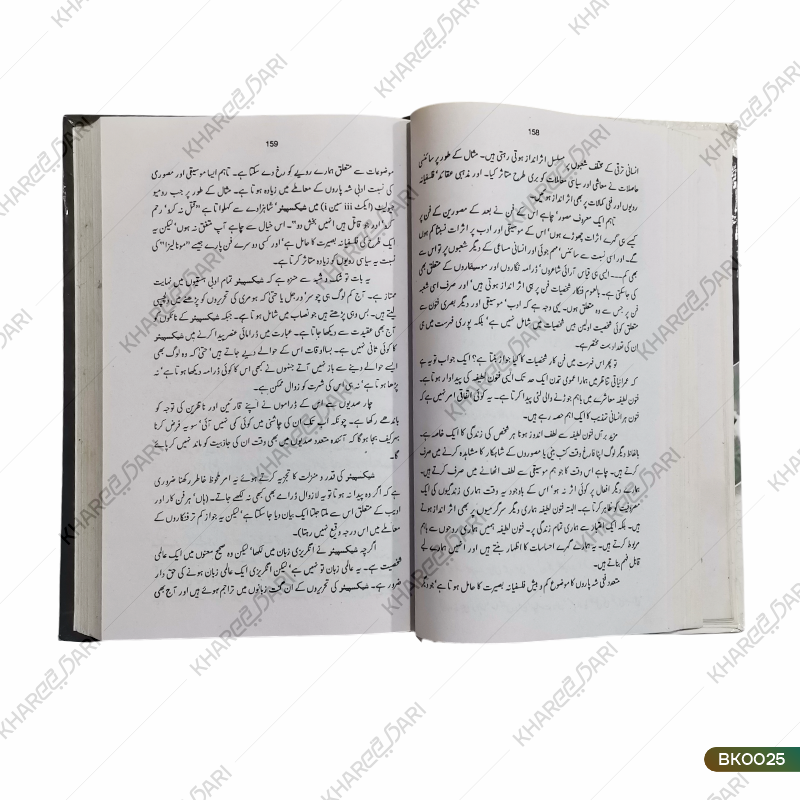 158
انسانی ترقی کے مختلف شعبوں پر مسلسل اثر انداز ہوتی رہتی ہیں۔ مثال کے طور پر سائنسی
حاصلات نے معاشی اور سیاسی معاملات کو بری طرح متاثر کیا۔ اور مذہبی عقائد' فلسفیانہ
رویوں اور فنی کمالات پر بھی اثر انداز ہوئیں۔
تاہم ایک معروف مصور' چاہے اس کے فن نے بعد کے مصورین کے فن پر
کیسے ہی گہرے اثرات چھوڑے ہوں' اس کے موسیقی اور ادب پر اثرات نسبتاً کم ہوں
گے۔ اور اسی نسبت سے سائنس' مہم جوئی اور انسانی مساعی کے دیگر شعبوں پر تو اس سے
بھی کم۔۔۔ ایسی ہی قیاس آرائی شاعروں' ڈرامہ نگاروں اور موسیقاروں کے متعلق بھی
کی جا سکتی ہے۔ بالعموم فنکار شخصیات فن پر ہی اثر انداز ہوتی ہیں' اور صرف اسی شعبہ
فن پر جس سے وہ متعلق ہوں۔ یہی وجہ ہے کہ ادب' موسیقی اور دیگر بصری فنون سے
متعلق کوئی شخصیت اولین بیس شخصیات میں شامل نہیں ہے' بلکہ پوری فہرست میں ہی
ان کی تعداد بہت مختصر ہے۔
تو پھر اس فہرست میں فن کار شخصیات کا کیا جواز بنتا ہے؟ ایک جواب تو یہ ہے
کہ عمرانیاتی تناظر میں ہمارا عمومی تمدن ایک حد تک ایسی فنون لطیفہ کی پیداوار ہوتا ہے۔
فنون لطیفہ معاشرے میں باہم جوڑنے والی لئی پیدا کرتا ہے۔ یہ کوئی اتفاقی امر نہیں ہے کہ
فنون ہر انسانی تہذیب کا ایک اہم حصہ رہے ہیں۔
مزید برآں فنون لطیفہ سے لطف اندوز ہونا ہر شخص کی زندگی کا ایک خاصہ ہے۔
بالفاظ دیگر لوگ اپنا فارغ وقت کتب بینی یا مصوروں کے شاہکار کا مشاہدہ کرنے میں صرف
کرتے ہیں۔ چاہے اس وقت کا جو ہم موسیقی سے لطف اٹھانے میں صرف کرتے ہیں۔
ہمارے دیگر افعال پر کوئی اثر نہ ہو' اس کے باوجود یہ وقت ہماری زندگیوں کی ایک
مصروفیت کو ظاہر کرتا ہے۔ البتہ فنون لطیفہ ہماری دیگر سرگرمیوں پر بھی اثر انداز ہوتے
ہیں۔ بلکہ ایک اعتبار سے ہماری تمام زندگی پر۔ فنون لطیفہ ہمیں ہماری روحوں سے باہم
مربوط کرتے ہیں۔ یہ ہمارے گہرے احساسات کا اظہار بنتے ہیں اور انہیں ہمارے لئے
قابل فہم بناتے ہیں۔
متعدد فنی شہ پاروں کا موضوع کم و بیش فلسفیانہ بصیرت کا حامل ہوتا ہے' جو دیگر
159
موضوعات سے متعلق ہمارے رویے کو رخ دے سکتا ہے۔ تاہم ایسا موسیقی اور مصوری
کی نسبت ادبی شہ پاروں کے معاملے میں زیادہ ہوتا ہے۔ مثال کے طور پر جب رومیو
جولیٹ (ایکٹ iii سین i) میں شیکسپیئر شاہزادے سے کہلواتا ہے "قتل نہ کرو' رحم
کرو' اور جو قاتل ہیں انہیں بخش دو"۔ اس خیال سے چاہے آپ متفق نہ ہوں' لیکن یہ
ایک طرح کی فلسفیانہ بصیرت کا حامل ہے' اور کسی دوسرے فن پارے جیسے "مونا لیزا" کی
نسبت یہ سیاسی رویوں کو زیادہ متاثر کرتا ہے۔
یہ بات تو شک و شبہ سے منزہ ہے کہ شیکسپیئر تمام ادبی ہستیوں میں نہایت
ممتاز ہے۔ آج کم لوگ ہی چوسر' ورجل یا حتیٰ کہ ہومر کی تحریروں کو پڑھنے میں دلچسپی
لیتے ہیں۔ بس وہی پڑھتے ہیں جو نصاب میں شامل ہوتا ہے۔ جبکہ شیکسپیئر کے ناٹکوں کو
آج بھی عقیدت سے دیکھا جاتا ہے۔ عبارت میں ڈرامائی عنصر پیدا کرنے میں شیکسپیئر
کا کوئی ثانی نہیں ہے۔ بسا اوقات اس کے حوالے دیے جاتے ہیں' حتیٰ کہ وہ لوگ بھی
ایسے حوالے دینے سے باز نہیں آتے جنہوں نے کبھی اس کا کوئی ڈرامہ دیکھا ہوتا ہے' نہ
پڑھا ہوتا ہے' نہ ہی اس کی شہرت کو زوال ممکن ہے۔
چار صدیوں سے اس کے ڈراموں نے اپنے قارئین اور ناظرین کی توجہ کو
باندھے رکھا ہے۔ چونکہ اب تک ان کی چاشنی میں کوئی کمی نہیں آئی' سو یہ فرض کرنا
بہرکیف بجا ہو گا کہ آئندہ متعدد صدیوں میں بھی وقت ان کی جاذبیت کو ماند نہیں کر پائے
گا۔
شیکسپیئر کی قدر و منزلت کا تجزیہ کرتے ہوئے یہ امر ملحوظ خاطر رکھنا ضروری
ہے کہ اگر وہ پیدا نہ ہوتا تو یہ لازوال ڈرامے بھی کبھی نہ لکھے جاتے۔ (ہاں' ہر فن کار اور
ادیب کے متعلق اس سے ملتا جلتا ایک بیان دیا جا سکتا ہے' لیکن یہ جواز کم تر فنکاروں کے
معاملے میں اس درجہ وقیع نہیں رہتا)۔
اگرچہ شیکسپیئر نے انگریزی زبان میں لکھا' لیکن وہ صحیح معنوں میں ایک عالمی
شخصیت ہے۔ یہ عالمی زبان تو نہیں ہے' لیکن انگریزی ایک عالمی زبان ہونے کی حق دار
ضرور ہے۔ شیکسپیئر کی تحریروں کے ان گنت زبانوں میں تراجم ہوئے ہیں اور آج بھی
BK0025